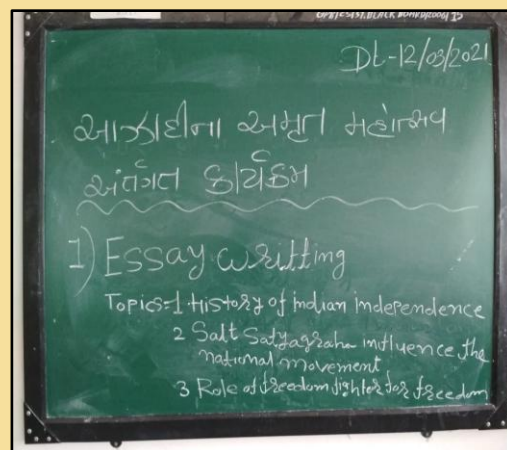 Dt-12/03/2021
આઝાદીના અમૃત મહોત્સવ
અંતર્ગત કાર્યક્રમ
1) Essay writting
Topics:-1 History of indian independence
2 Salt Satyagraha influence the
national movement
3 Role of freedom fighter for freedom